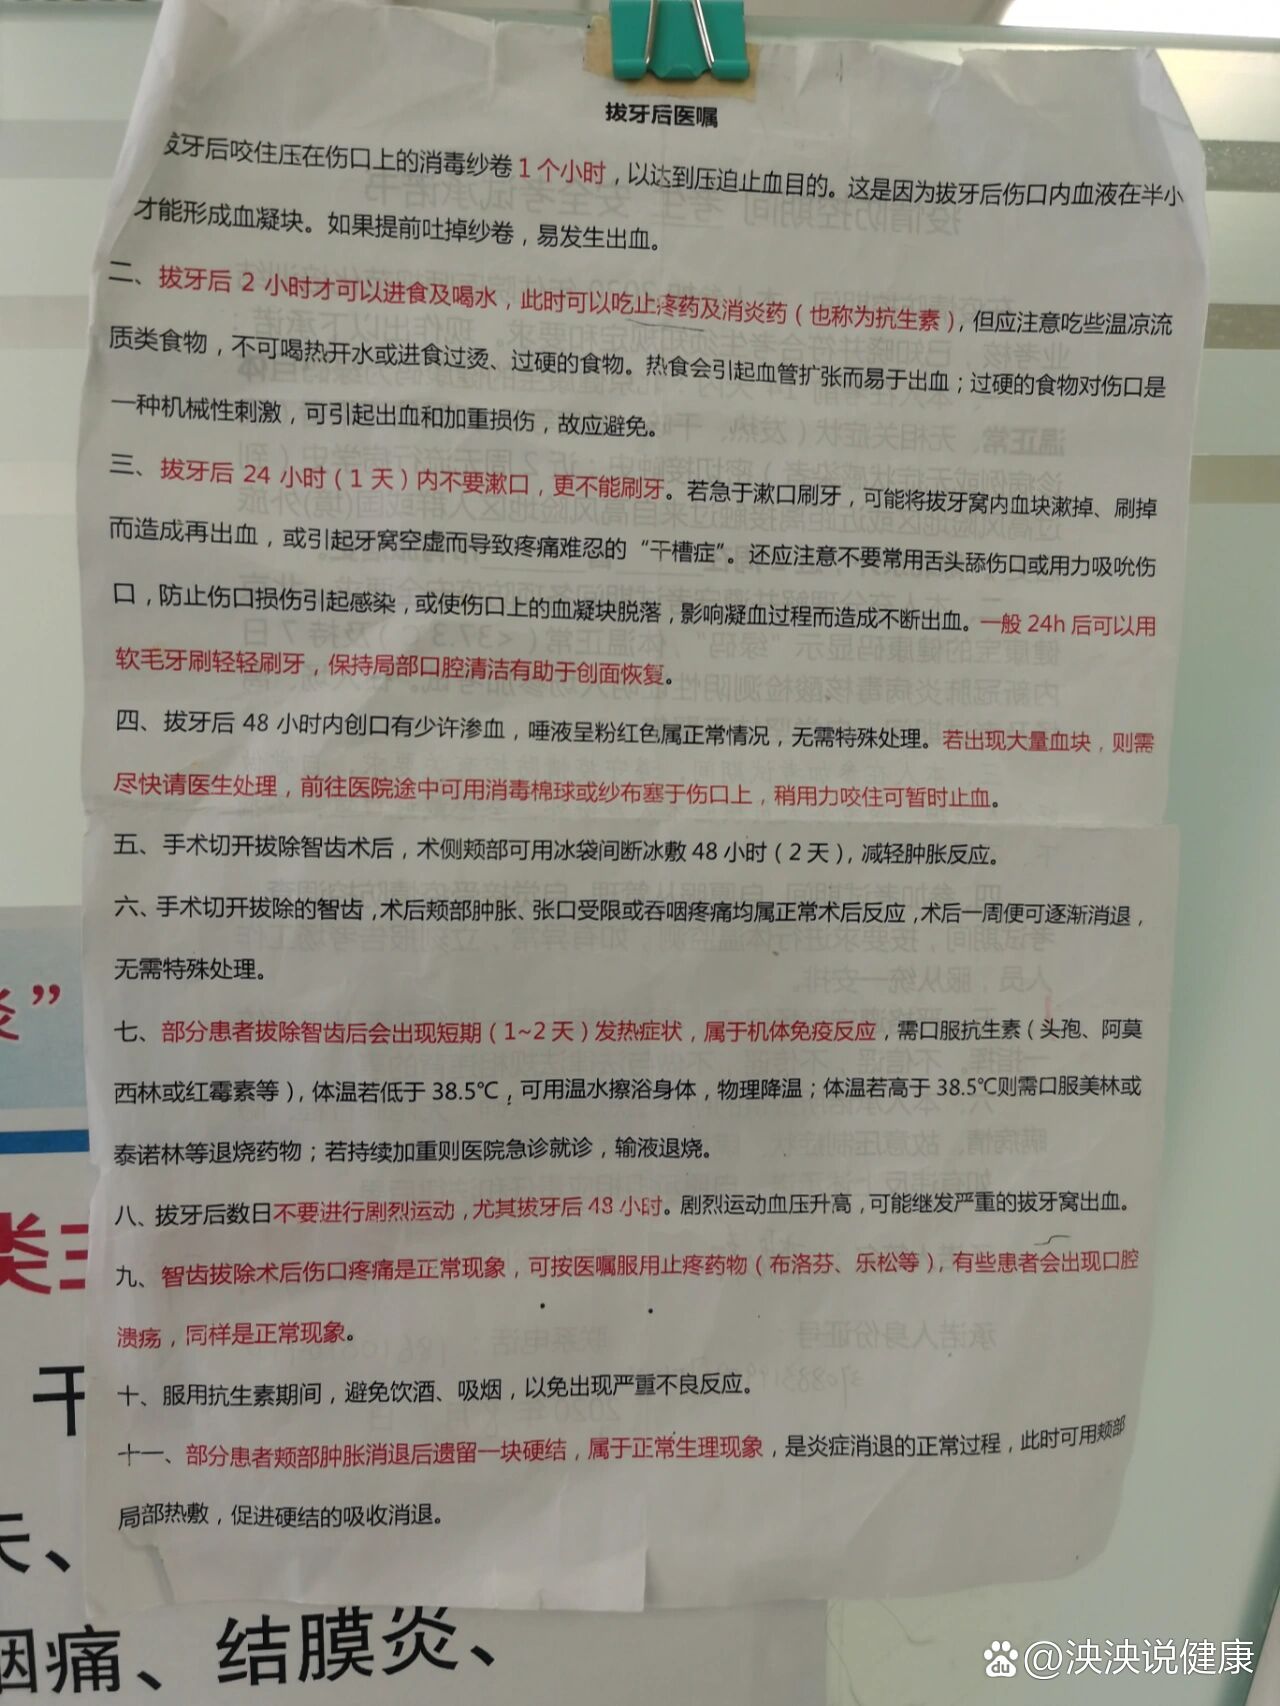 拔牙后医嘱
拔牙后咬住压在伤口上的消毒纱卷1个小时，以达到压迫止血目的。这是因为拔牙后伤口内血液在半小
才能形成血凝块。如果提前吐掉纱卷，易发生出血。
二、拔牙后 2 小时才可以进食及喝水，此时可以吃止疼药及消炎药（也称为抗生素），但应注意吃些温凉流
质类食物，不可喝热开水或进食过烫、过硬的食物。热食会引起血管扩张而易于出血；过硬的食物对伤口是
一种机械性刺激，可引起出血和加重损伤，故应避免。
三、拔牙后 24 小时（1 天）内不要漱口，更不能刷牙。若急于漱口刷牙，可能将拔牙窝内血块漱掉、刷掉
而造成再出血，或引起牙窝空虚而导致疼痛难忍的“干槽症”。还应注意不要常用舌头舔伤口或用力吸吮伤
口，防止伤口损伤引起感染，或使伤口上的血凝块脱落，影响凝血过程而造成不断出血。一般 24h 后可以用
软毛牙刷轻轻刷牙，保持局部口腔清洁有助于创面恢复。
四、拔牙后 48 小时内创口有少许渗血，唾液呈粉红色属正常情况，无需特殊处理。若出现大量血块，则需
尽快请医生处理，前往医院途中可用消毒棉球或纱布塞于伤口上，稍用力咬住可暂时止血。
五、手术切开拔除智齿术后，术侧颊部可用冰袋间断冰敷 48 小时（2 天），减轻肿胀反应。
六、手术切开拔除的智齿，术后颊部肿胀、张口受限或吞咽疼痛均属正常术后反应，术后一周便可逐渐消退，
无需特殊处理。
七、部分患者拔除智齿后会出现短期（1~2 天）发热症状，属于机体免疫反应，需口服抗生素（头孢、阿莫
西林或红霉素等），体温若低于 38.5℃，可用温水擦浴身体，物理降温；体温若高于 38.5℃则需口服美林或
泰诺林等退烧药物；若持续加重则医院急诊就诊，输液退烧。
八、拔牙后数日不要进行剧烈运动，尤其拔牙后 48 小时。剧烈运动血压升高，可能继发严重的拔牙窝出血。
九、智齿拔除术后伤口疼痛是正常现象，可按医嘱服用止疼药物（布洛芬、乐松等），有些患者会出现口腔
溃疡，同样是正常现象。
十、服用抗生素期间，避免饮酒、吸烟，以免出现严重不良反应。
十一、部分患者颊部肿胀消退后遗留一块硬结，属于正常生理现象，是炎症消退的正常过程，此时可用颊部
局部热敷，促进硬结的吸收消退。
炎”
类
干
、
咽痛、结膜炎、
@泱泱说健康